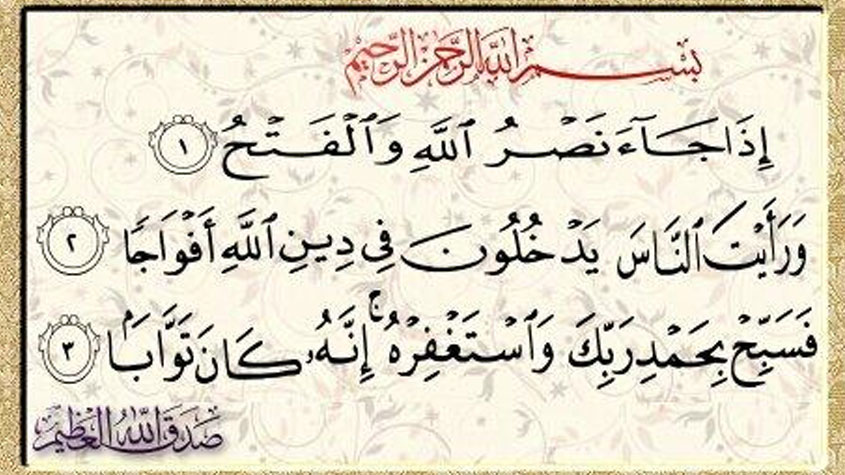 بسم الله الرحمن الرحيم
إِذَا جَآءَ نَصْرُ ٱللَّهِ وَٱلْفَتْحُ ١
وَرَأَيْتَ ٱلنَّاسَ يَدْخُلُونَ فِى دِينِ ٱللَّهِ أَفْوَاجًا ٢
فَسَبِّحْ بِحَمْدِ رَبِّكَ وَٱسْتَغْفِرْهُ ۚ إِنَّهُۥ كَانَ تَوَّابَۢا ٣
صدق الله العظيم